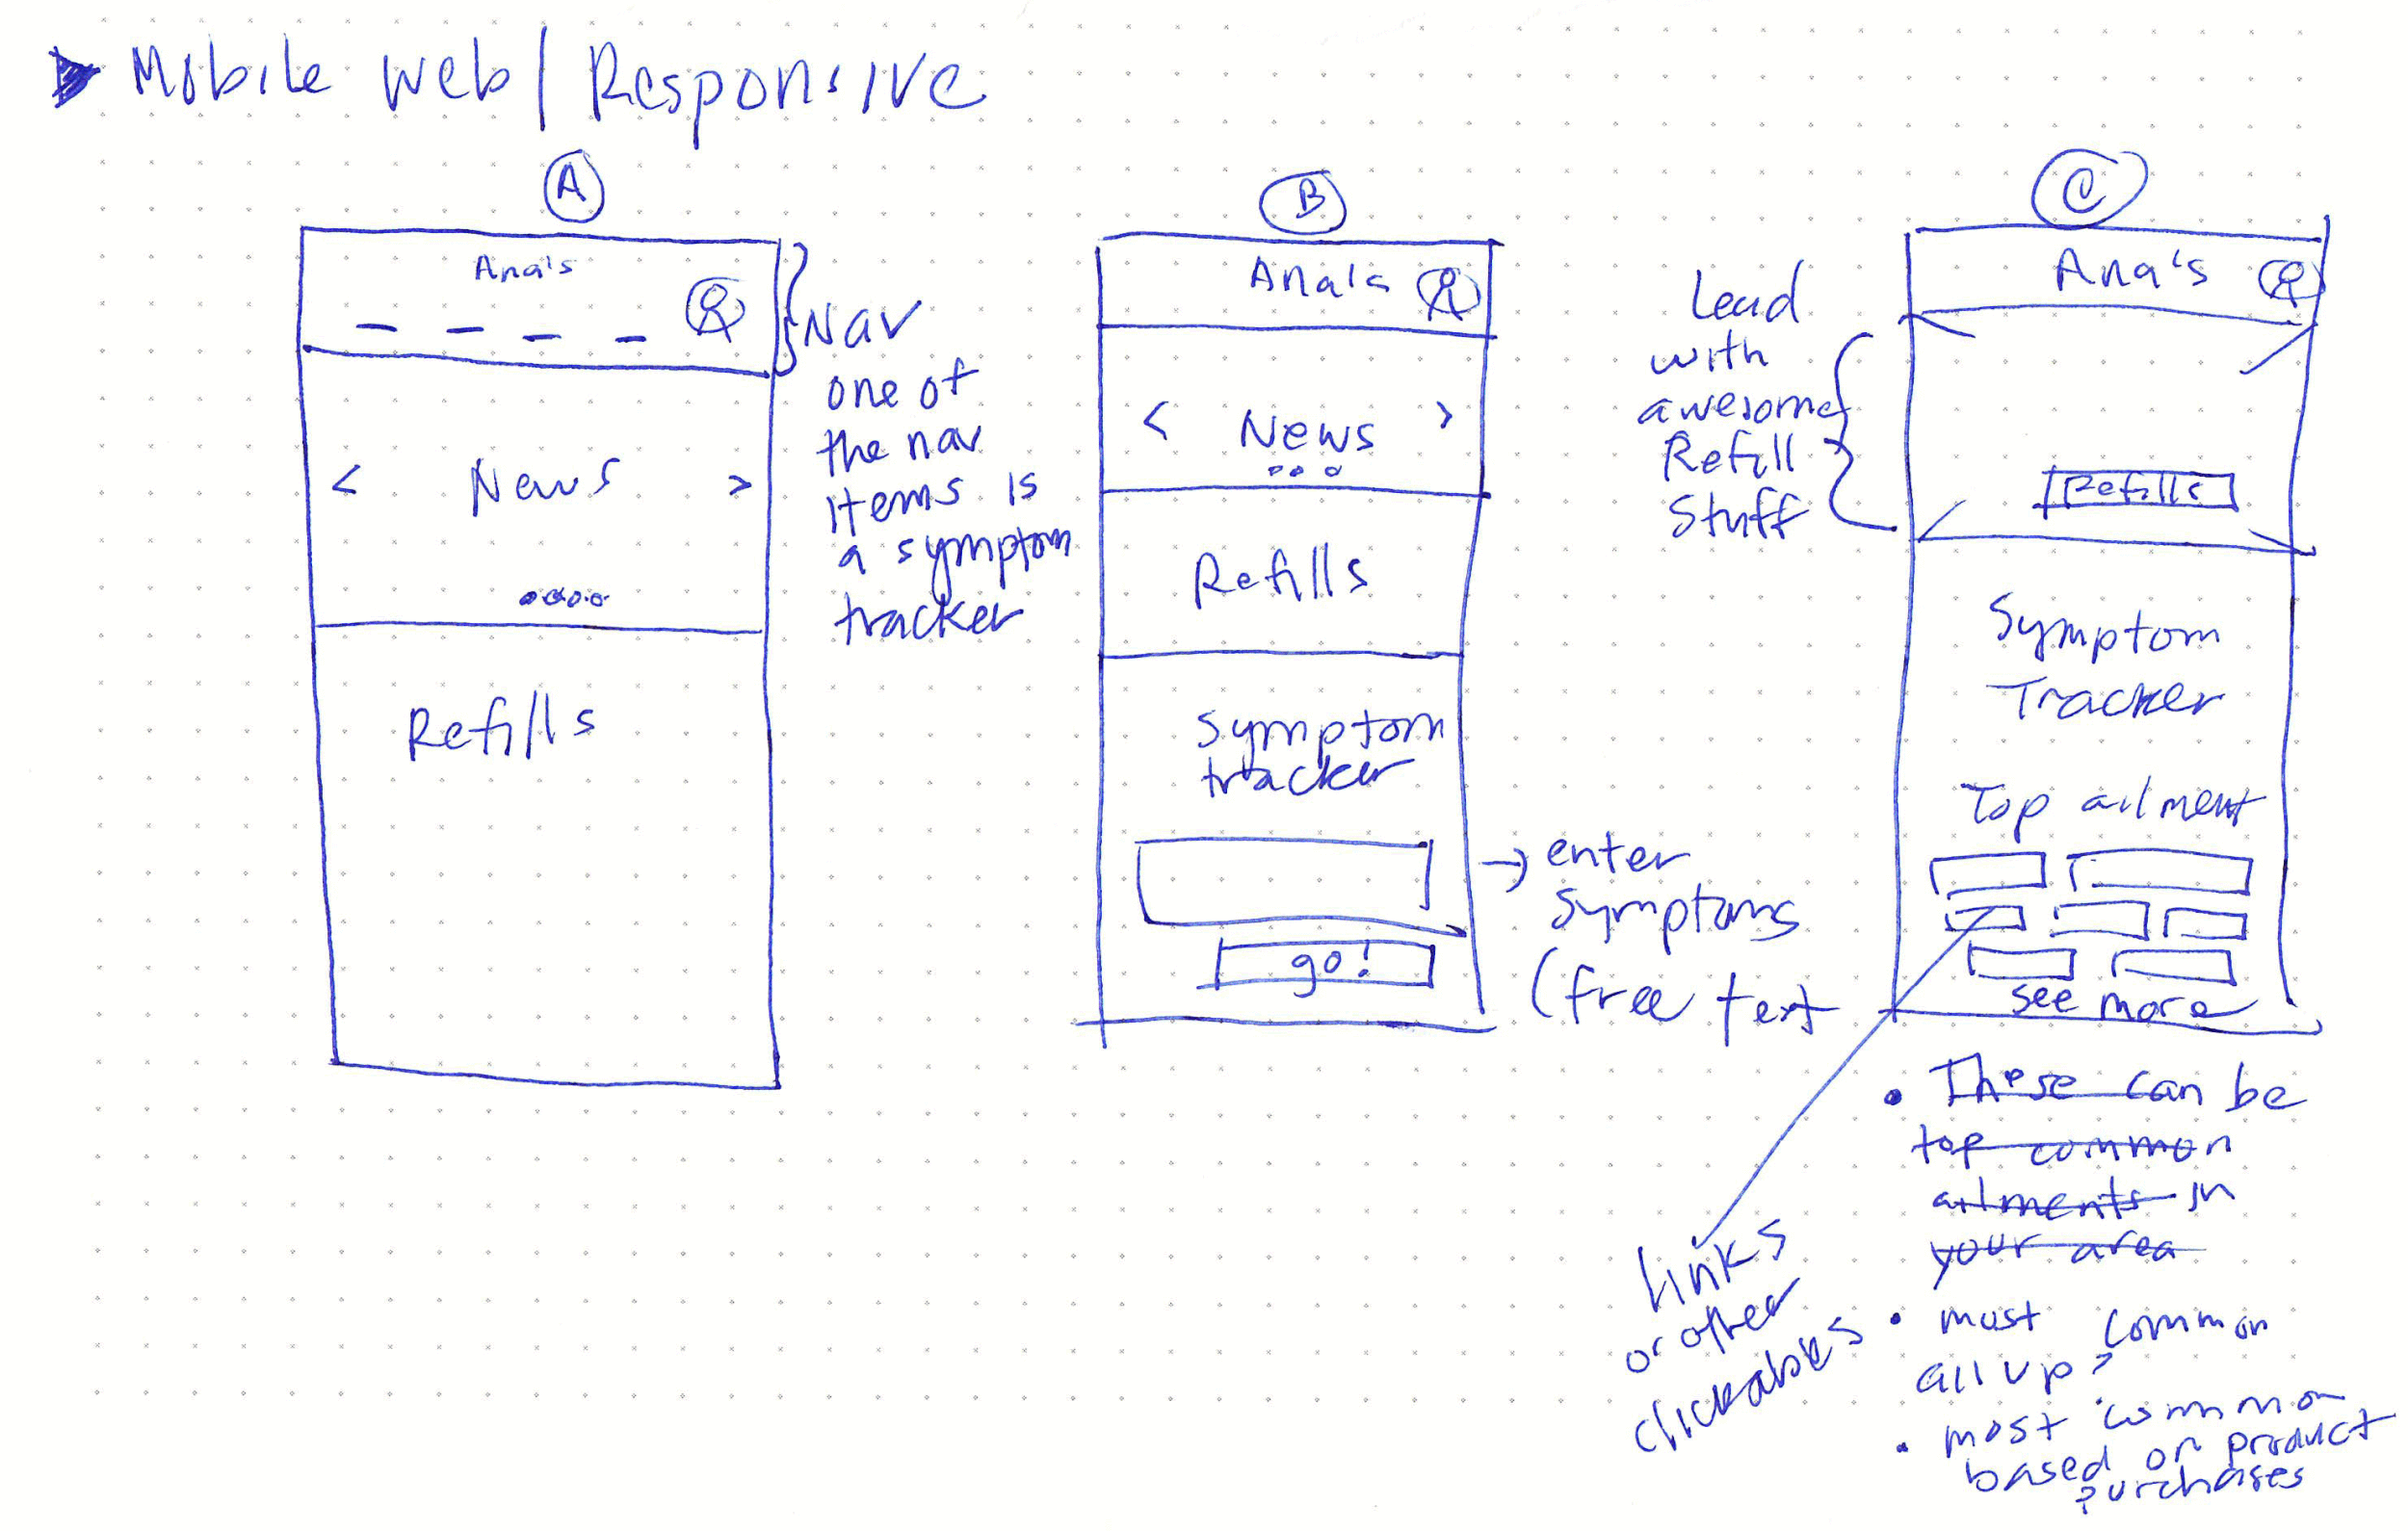 Mobile Web | Responsive
A
Ana's
Nav
one of
the nav
items is
a symptom
tracker
< News >
Refills
B
Ana's
< News >
Refills
Symptom
tracker
go!
→ enter
symptoms
(free text
C
Ana's
Lead
with
awesome
Refill
Stuff
Refills
Symptom
Tracker
Top ailment
see more
links
or other
clickables
• These can be
top common
ailments in
your area
• most common
all up?
• most common
based on product
purchases